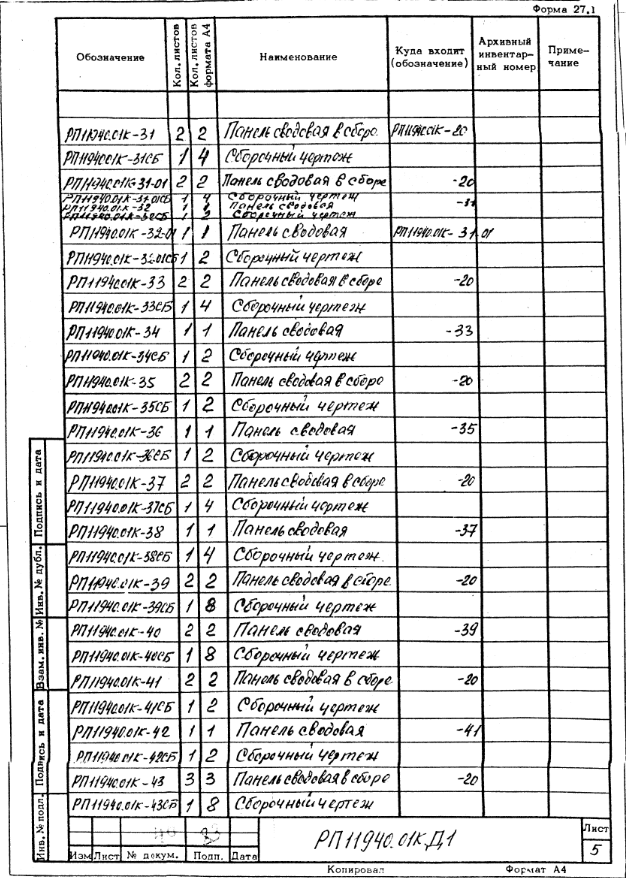 Форма 27.1
Обозначение Кол. листов Кол. листов формата А4 Наименование Куда входит (обозначение) Архивный инвентарный номер Примечание
РП11940.01К-31 2 2 Панель сводовая в сборе РП11940.01К-20
РП11940.01К-31СБ 1 4 Сборочный чертеж
РП11940.01К-31-01 2 2 Панель сводовая в сборе -20
РП11940.01К-31-01СБ 1 4 Сборочный чертеж
РП11940.01К-32 1 1 Панель сводовая -31
РП11940.01К-32СБ 1 2 Сборочный чертеж
РП11940.01К-32-01 1 1 Панель сводовая РП11940.01К-31-01
РП11940.01К-32-01СБ 1 2 Сборочный чертеж
РП11940.01К-33 2 2 Панель сводовая в сборе -20
РП11940.01К-33СБ 1 4 Сборочный чертеж
РП11940.01К-34 1 1 Панель сводовая -33
РП11940.01К-34СБ 1 2 Сборочный чертеж
РП11940.01К-35 2 2 Панель сводовая в сборе -20
РП11940.01К-35СБ 1 2 Сборочный чертеж
РП11940.01К-36 1 1 Панель сводовая -35
РП11940.01К-36СБ 1 2 Сборочный чертеж
РП11940.01К-37 2 2 Панель сводовая в сборе -20
РП11940.01К-37СБ 1 4 Сборочный чертеж
РП11940.01К-38 1 1 Панель сводовая -37
РП11940.01К-38СБ 1 4 Сборочный чертеж
РП11940.01К-39 2 2 Панель сводовая в сборе -20
РП11940.01К-39СБ 1 8 Сборочный чертеж
РП11940.01К-40 2 2 Панель сводовая -39
РП11940.01К-40СБ 1 8 Сборочный чертеж
РП11940.01К-41 2 2 Панель сводовая в сборе -20
РП11940.01К-41СБ 1 2 Сборочный чертеж
РП11940.01К-42 1 1 Панель сводовая -41
РП11940.01К-42СБ 1 2 Сборочный чертеж
РП11940.01К-43 3 3 Панель сводовая в сборе -20
РП11940.01К-43СБ 1 8 Сборочный чертеж
Подпись и дата
Инв. № дубл.
Взам. инв. №
Подпись и дата
Инв. № подл.
Изм Лист № докум. Подп. Дата
РП11940.01К Д1
Лист
5
Копировал Формат А4